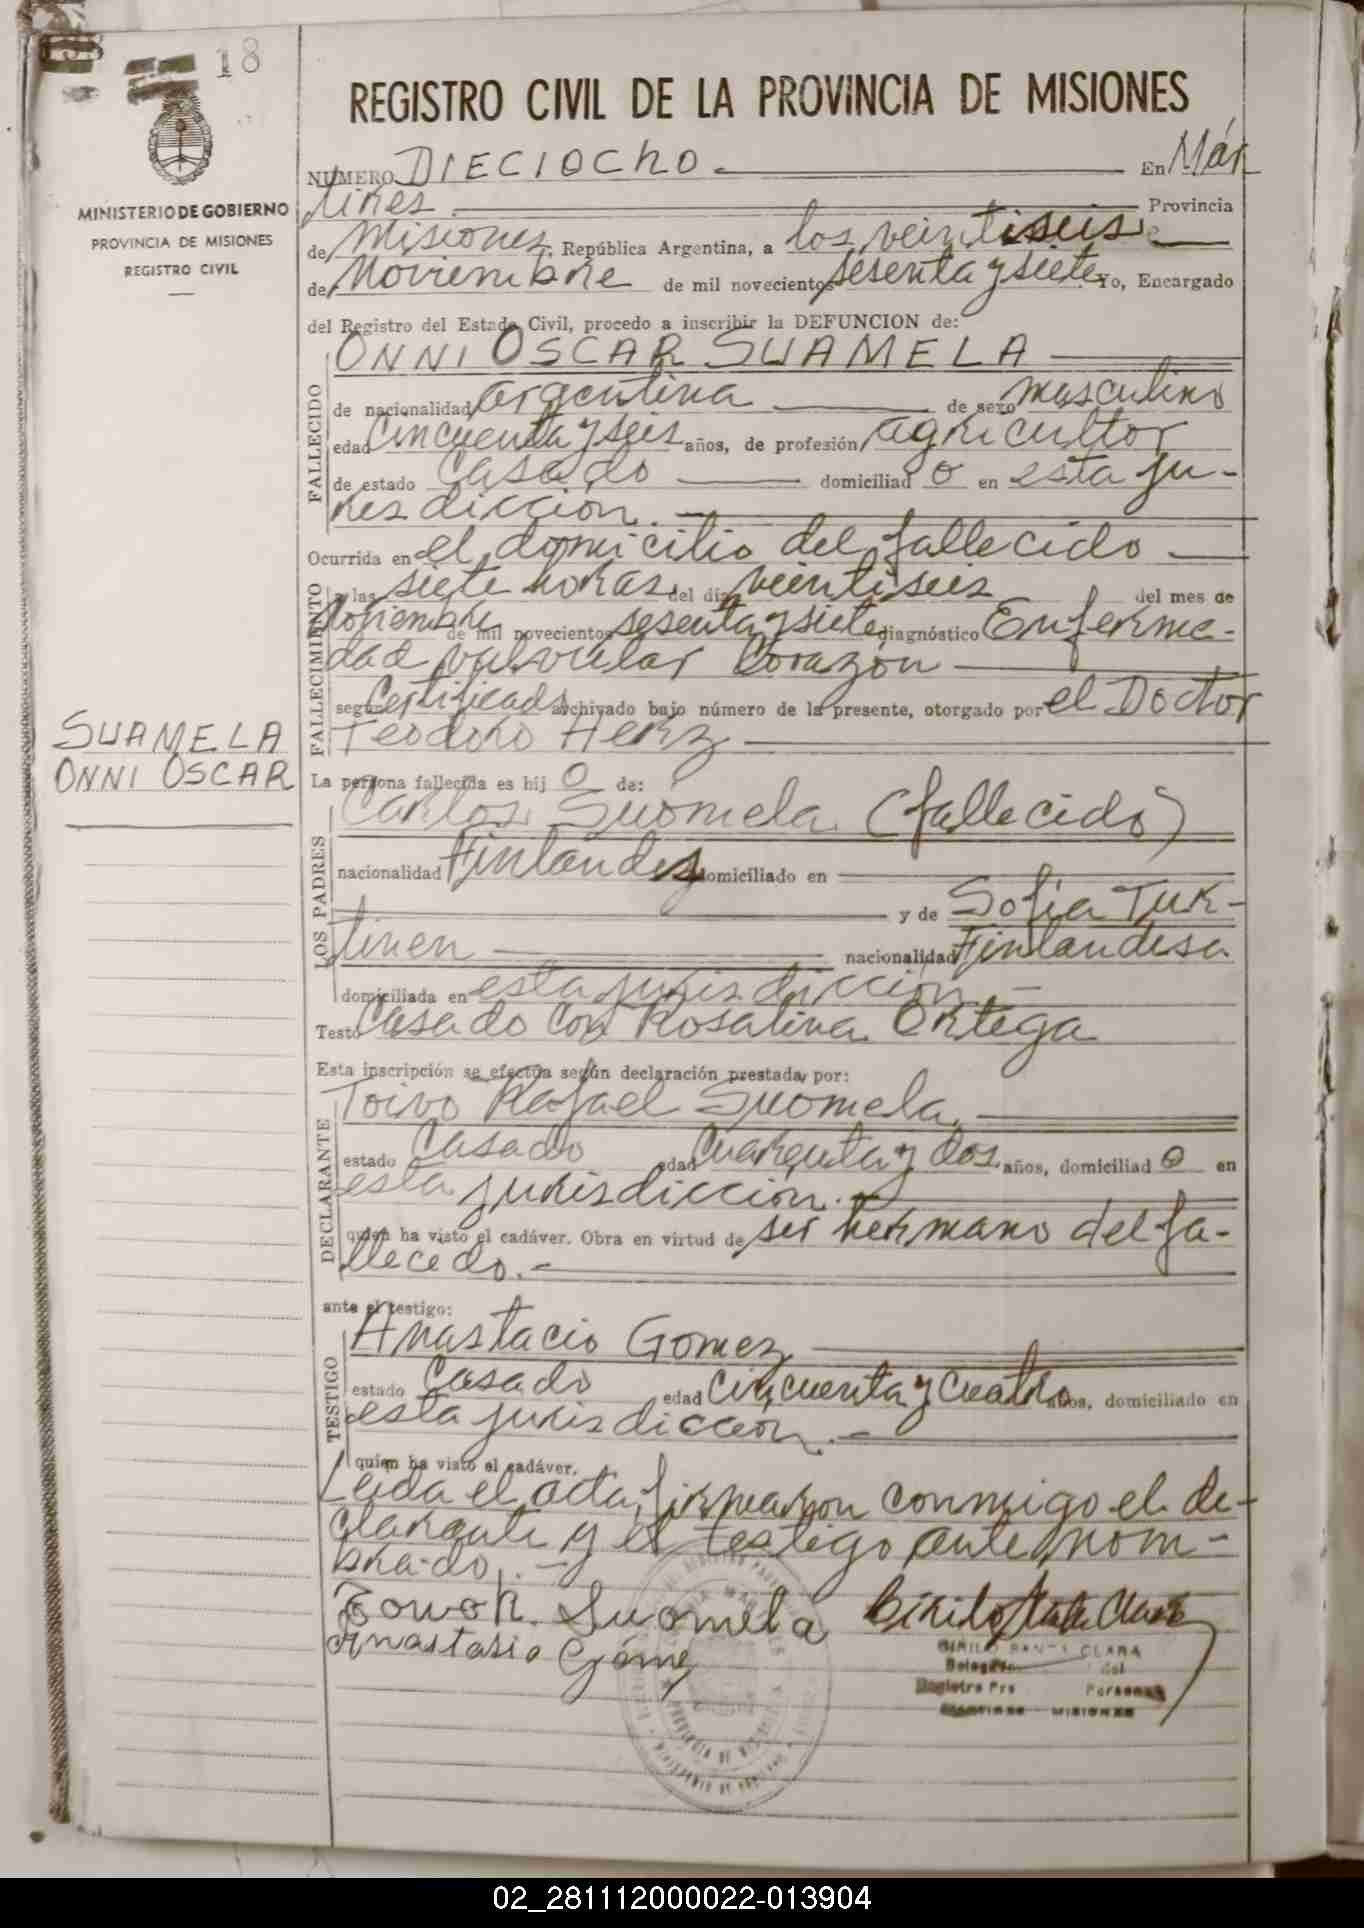 18
REGISTRO CIVIL DE LA PROVINCIA DE MISIONES
MINISTERIO DE GOBIERNO
PROVINCIA DE MISIONES
REGISTRO CIVIL
NUMERO DIECIOCHO. En Már
tires. Provincia
de Misiones, República Argentina, a los veintiseis
de Noviembre de mil novecientos sesenta y siete Yo, Encargado
del Registro del Estado Civil, procedo a inscribir la DEFUNCION de:
FALLECIDO
ONNI OSCAR SUAMELA
de nacionalidad argentina de sexo masculino
edad cincuenta y seis años, de profesión agricultor
de estado casado domiciliad o en esta ju-
risdicción.
Ocurrida en el domicilio del fallecido
FALLECIMIENTO
a las siete horas del día veintiseis del mes de
Noviembre de mil novecientos sesenta y siete diagnóstico Enferme-
dad valvular Corazón
según Certificado archivado bajo número de la presente, otorgado por el Doctor
Teodoro Herz
SUAMELA
ONNI OSCAR
La persona fallecida es hij o de:
LOS PADRES
Carlos Suomela (fallecido)
nacionalidad Finlandes domiciliado en
y de Sofia Tur-
tinen nacionalidad Finlandesa
domiciliada en esta jurisdiccion -
Testo Casado con Rosalina Ortega
Esta inscripción se efectúa según declaración prestada por:
DECLARANTE
Toivo Rafael Suomela
estado Casado edad cuarenta y dos años, domiciliad o en
esta jurisdiccion.
quien ha visto el cadáver. Obra en virtud de ser hermano del fa-
llecedo.-
ante el testigo:
TESTIGO
Anastacio Gomez
estado Casado edad cincuenta y cuatro años, domiciliado en
esta jurisdiccion.-
quien ha visto el cadáver.
Leida el acta, firmaron conmigo el de-
clarante y el testigo ante nom-
brado.-
Suomela
Anastasio Gómez
CIRILO SANTA CLARA
Delegado del
Registro Pro Personas
MARTIRES - MISIONES
02_281112000022-013904